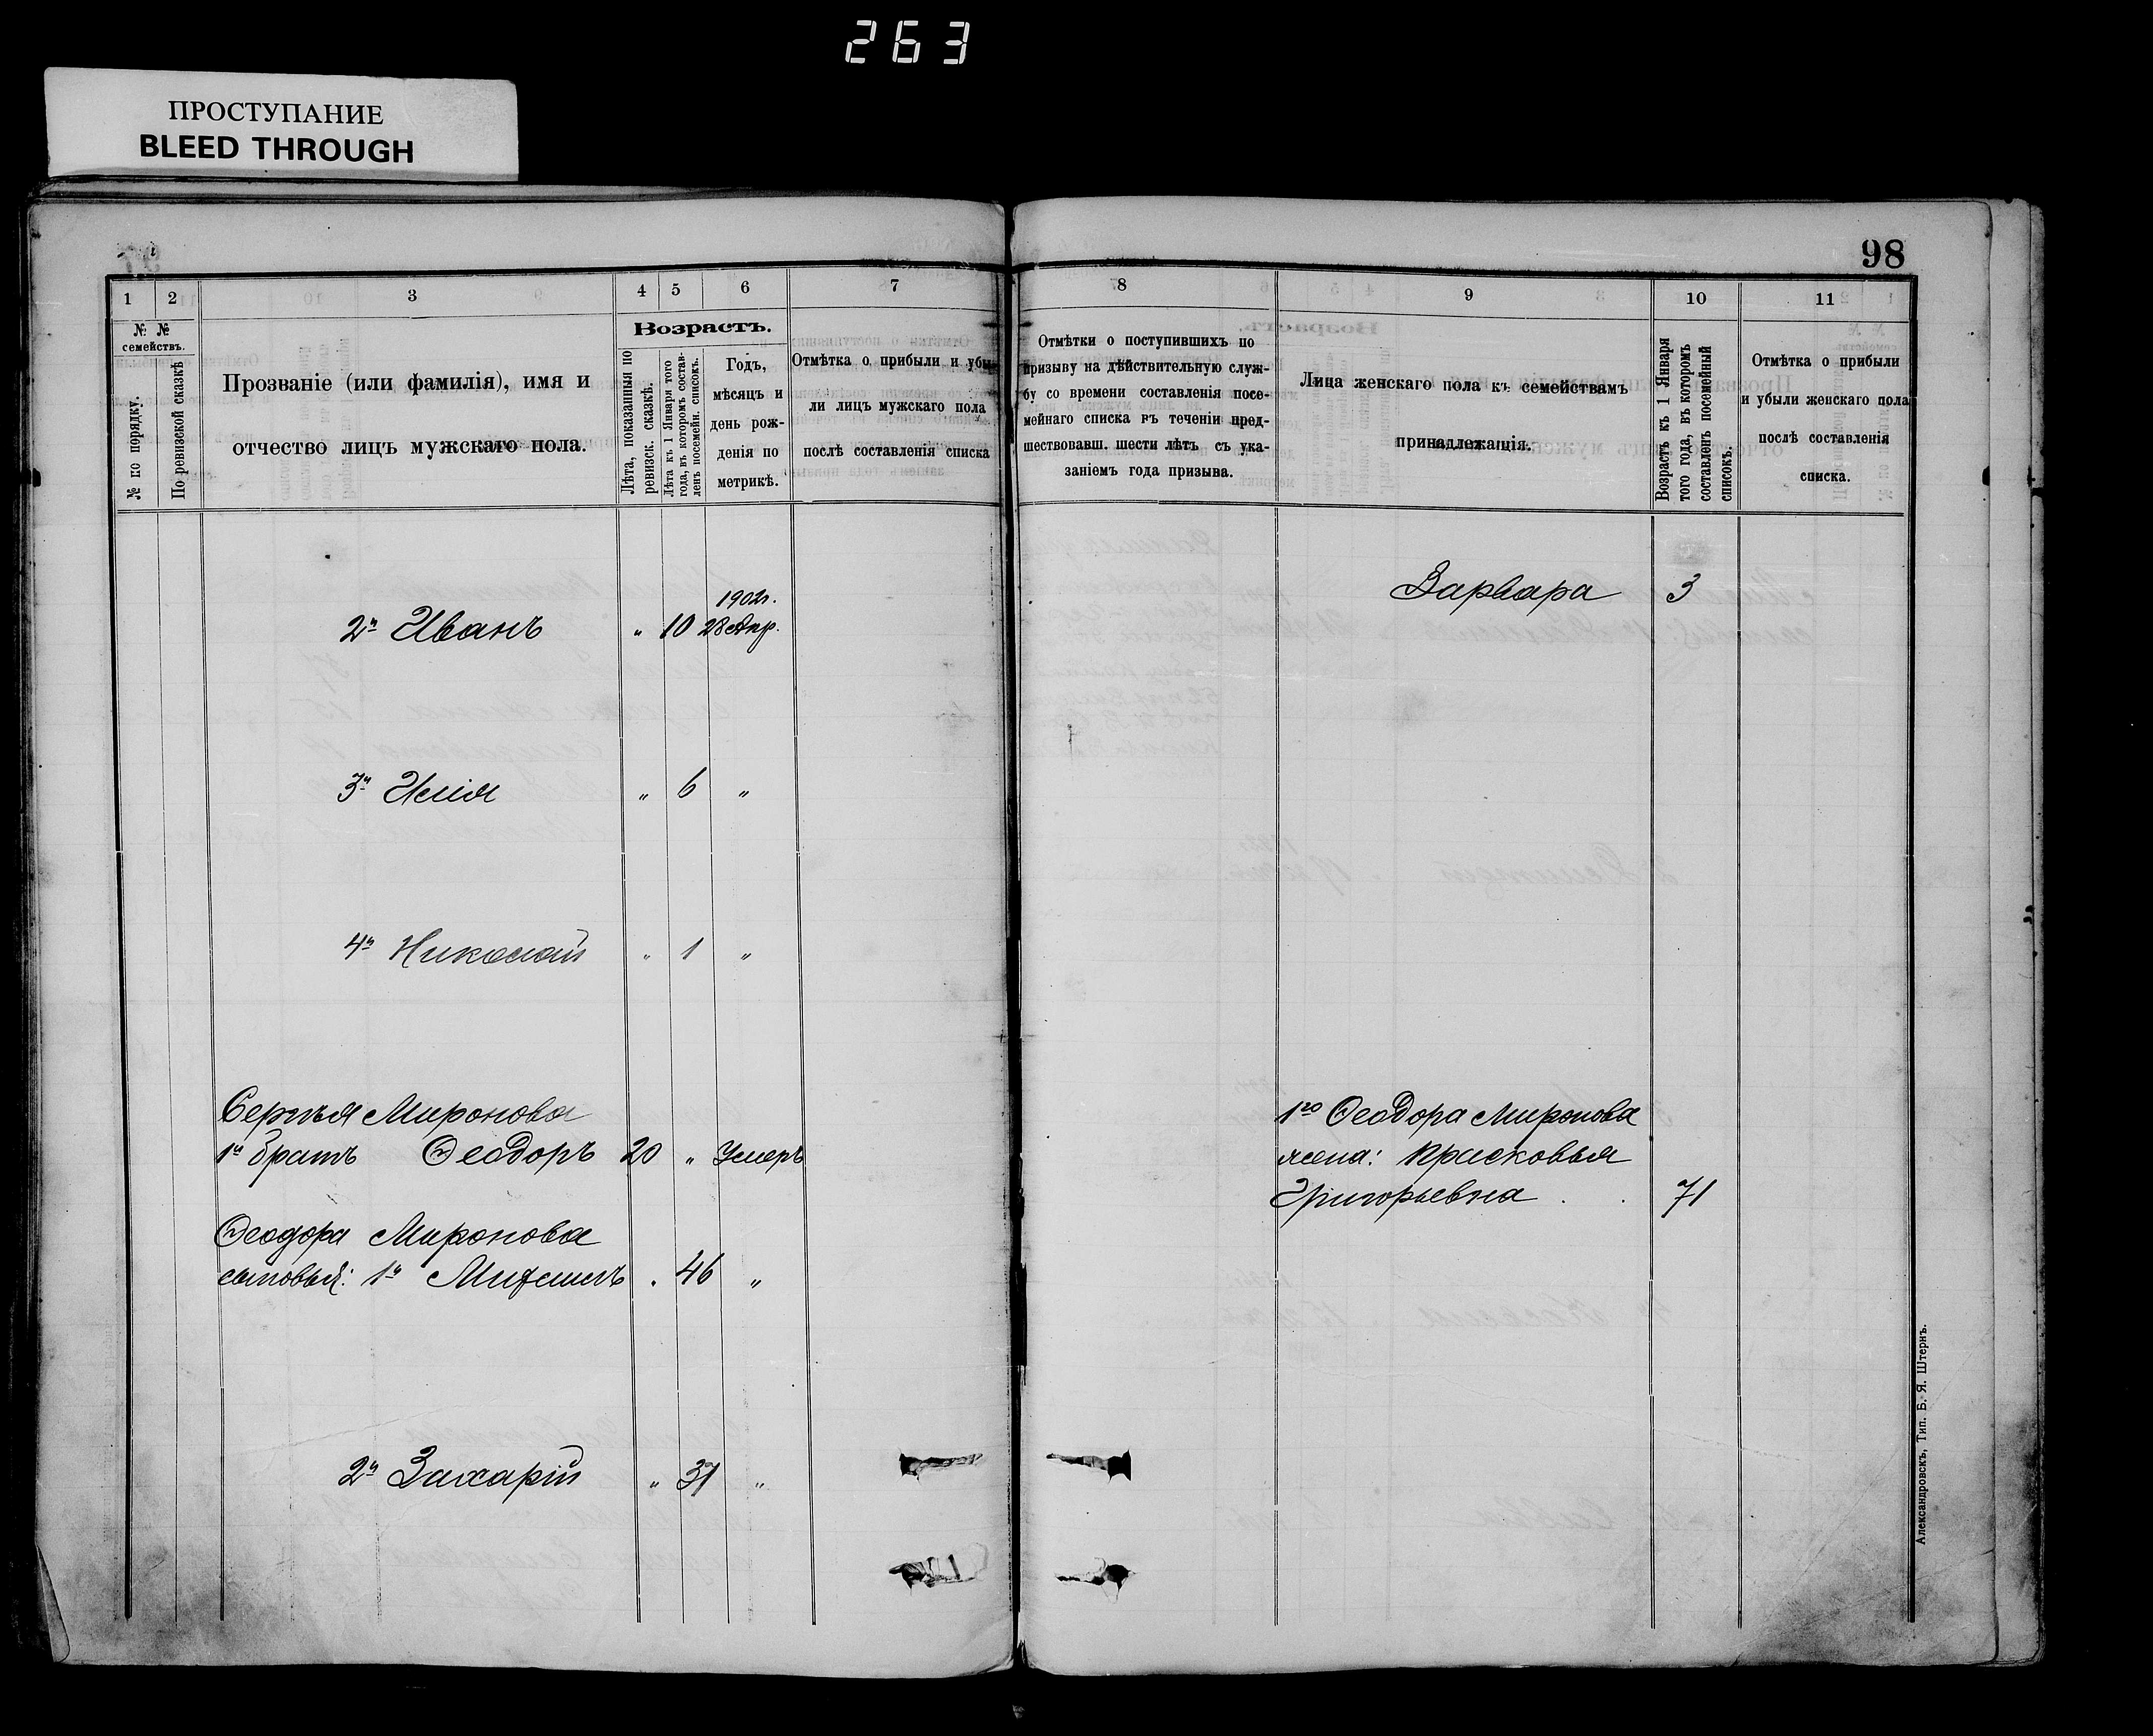 263
ПРОСТУПАНИЕ
BLEED THROUGH
98
1 2 3 4 5 6 7
№ № семействъ.
№ по порядку.
По ревизской сказкѣ
Прозваніе (или фамилія), имя и
отчество лицъ мужскаго пола.
Возрастъ.
Лѣта, показанныя по
ревизск. сказкѣ.
Лѣта къ 1 Января того
года, въ которомъ состав-
ленъ посемейн. списокъ.
Годъ,
мѣсяцъ и
день рож-
денія по
метрикѣ.
Отмѣтка о прибыли и убы
ли лицъ мужскаго пола
послѣ составленія списка
2й Иванъ " 10 1902г.
28 Апр.
3й Илія " 6 "
4й Николай " 1 "
Сергѣя Миронова
1й братъ Ѳеодоръ 20 " Умеръ
Ѳеодора Миронова
сыновья: 1й Михаилъ . 46 "
2й Захарій " 37 "
8 9 10 11
Отмѣтки о поступившихъ по
призыву на дѣйствительную служ-
бу со времени составленія посе-
мейнаго списка въ теченіи пред-
шествовавш. шести лѣтъ съ ука-
заніемъ года призыва.
Лица женскаго пола къ семействамъ
принадлежащія.
Возрастъ къ 1 Января
того года, въ которомъ
составленъ посемейный
списокъ.
Отмѣтка о прибыли
и убыли женскаго пола
послѣ составленія
списка.
Варвара 3
1го Ѳеодора Миронова
жена: Прасковья
Григорьевна . . 71
Александровскъ, Тип. Б. Я. Штернъ.